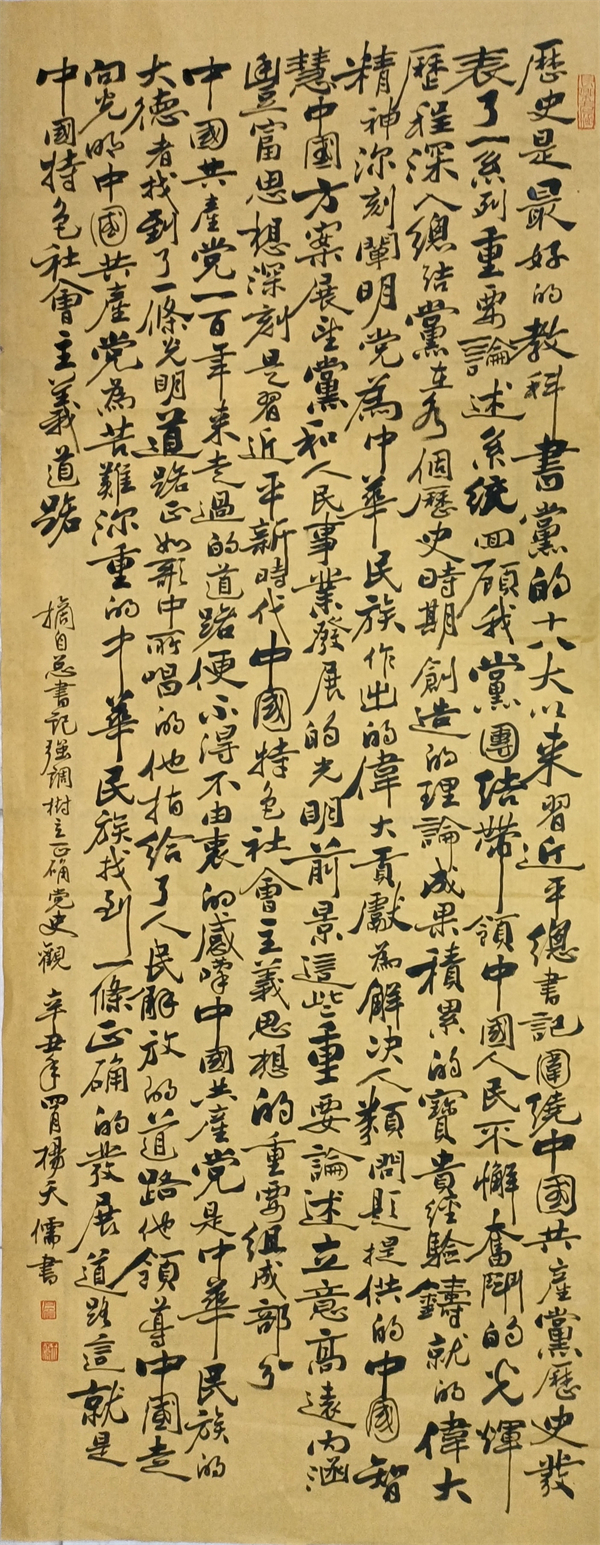 歷史是最好的教科書黨的十八大以来習近平總書記圍繞中國共產黨歷史發
表了一系列重要論述系統回顾我黨團结带領中國人民不懈奮鬥的光輝
歷程深入總结黨在各個歷史時期創造的理論成果積累的寶貴經驗鑄就的偉大
精神深刻闡明党為中華民族作出的偉大貢獻為解决人類問題提供的中國智
慧中國方案展望黨和人民事業發展的光明前景這些重要論述立意高遠內涵
豐富思想深刻是習近平新時代中國特色社會主義思想的重要組成部分
中國共產党一百年来走過的道路便不得不由衷的感嘆中國共產党是中華民族的
大德者找到了一條光明道路正如歌中所唱的他指给了人民解放的道路他領導中國走
向光明中國共產党為苦難深重的中華民族找到一條正确的發展道路這就是
中國特色社會主義道路
摘自总書記强調樹立正确党史觀 辛丑年四月楊天儒書